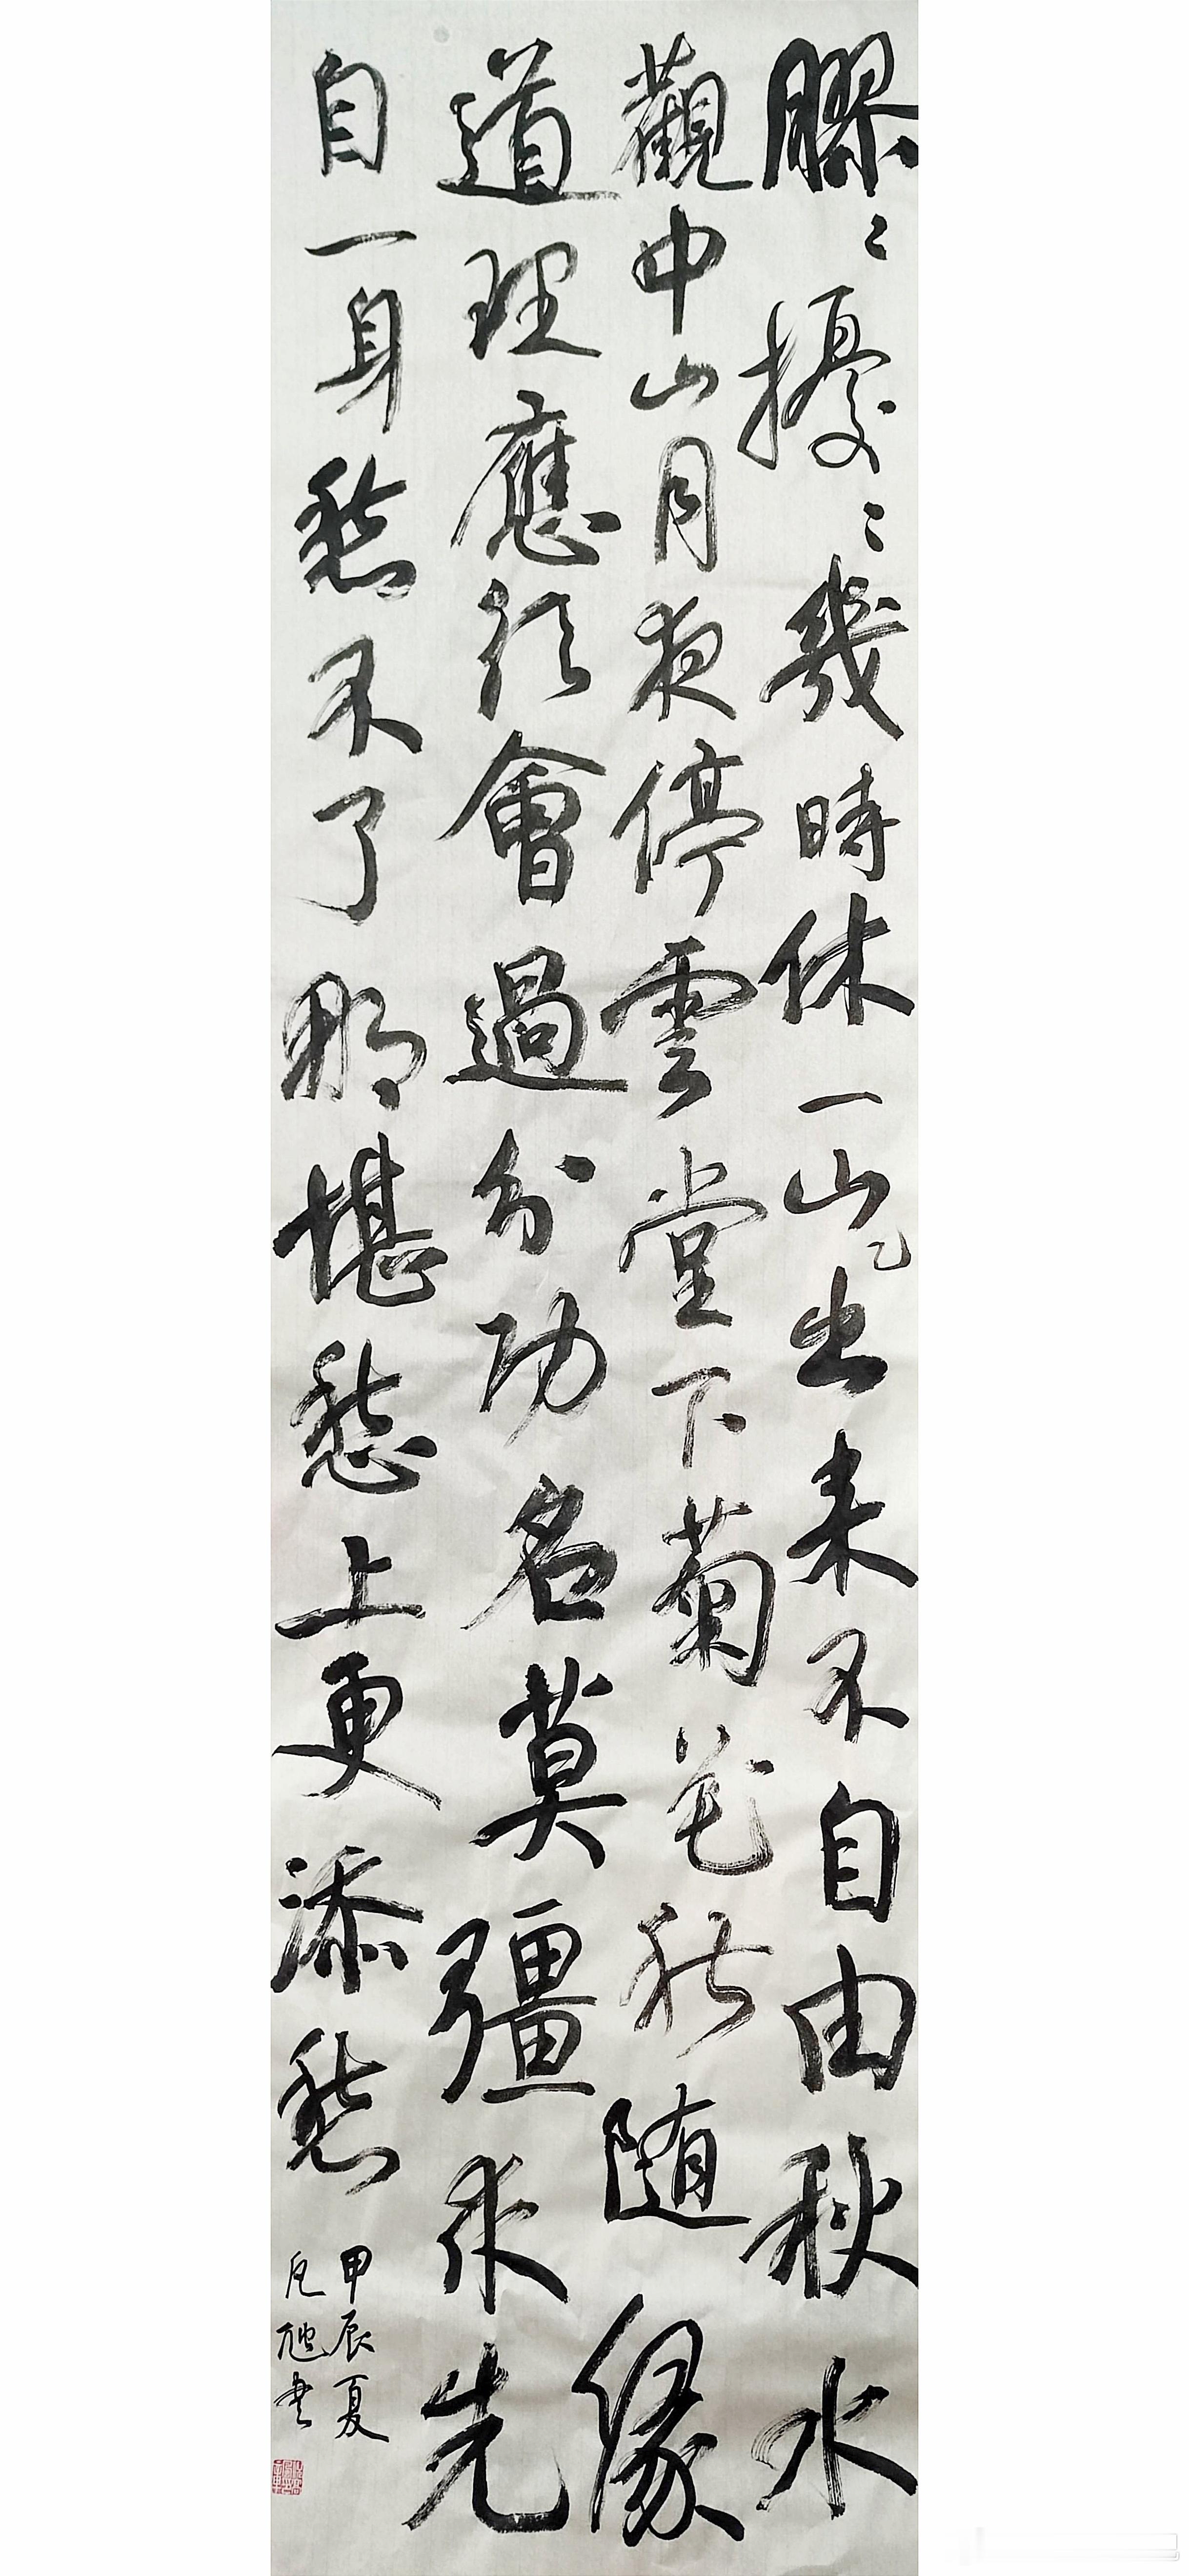 膠〻擾〻幾時休一山出来不自由秋水
觀中山月夜停雲堂下菊花秋随緣
道理應須會過分功名莫彊求先
自一身愁不了那堪愁上更添愁
甲辰夏
旭書